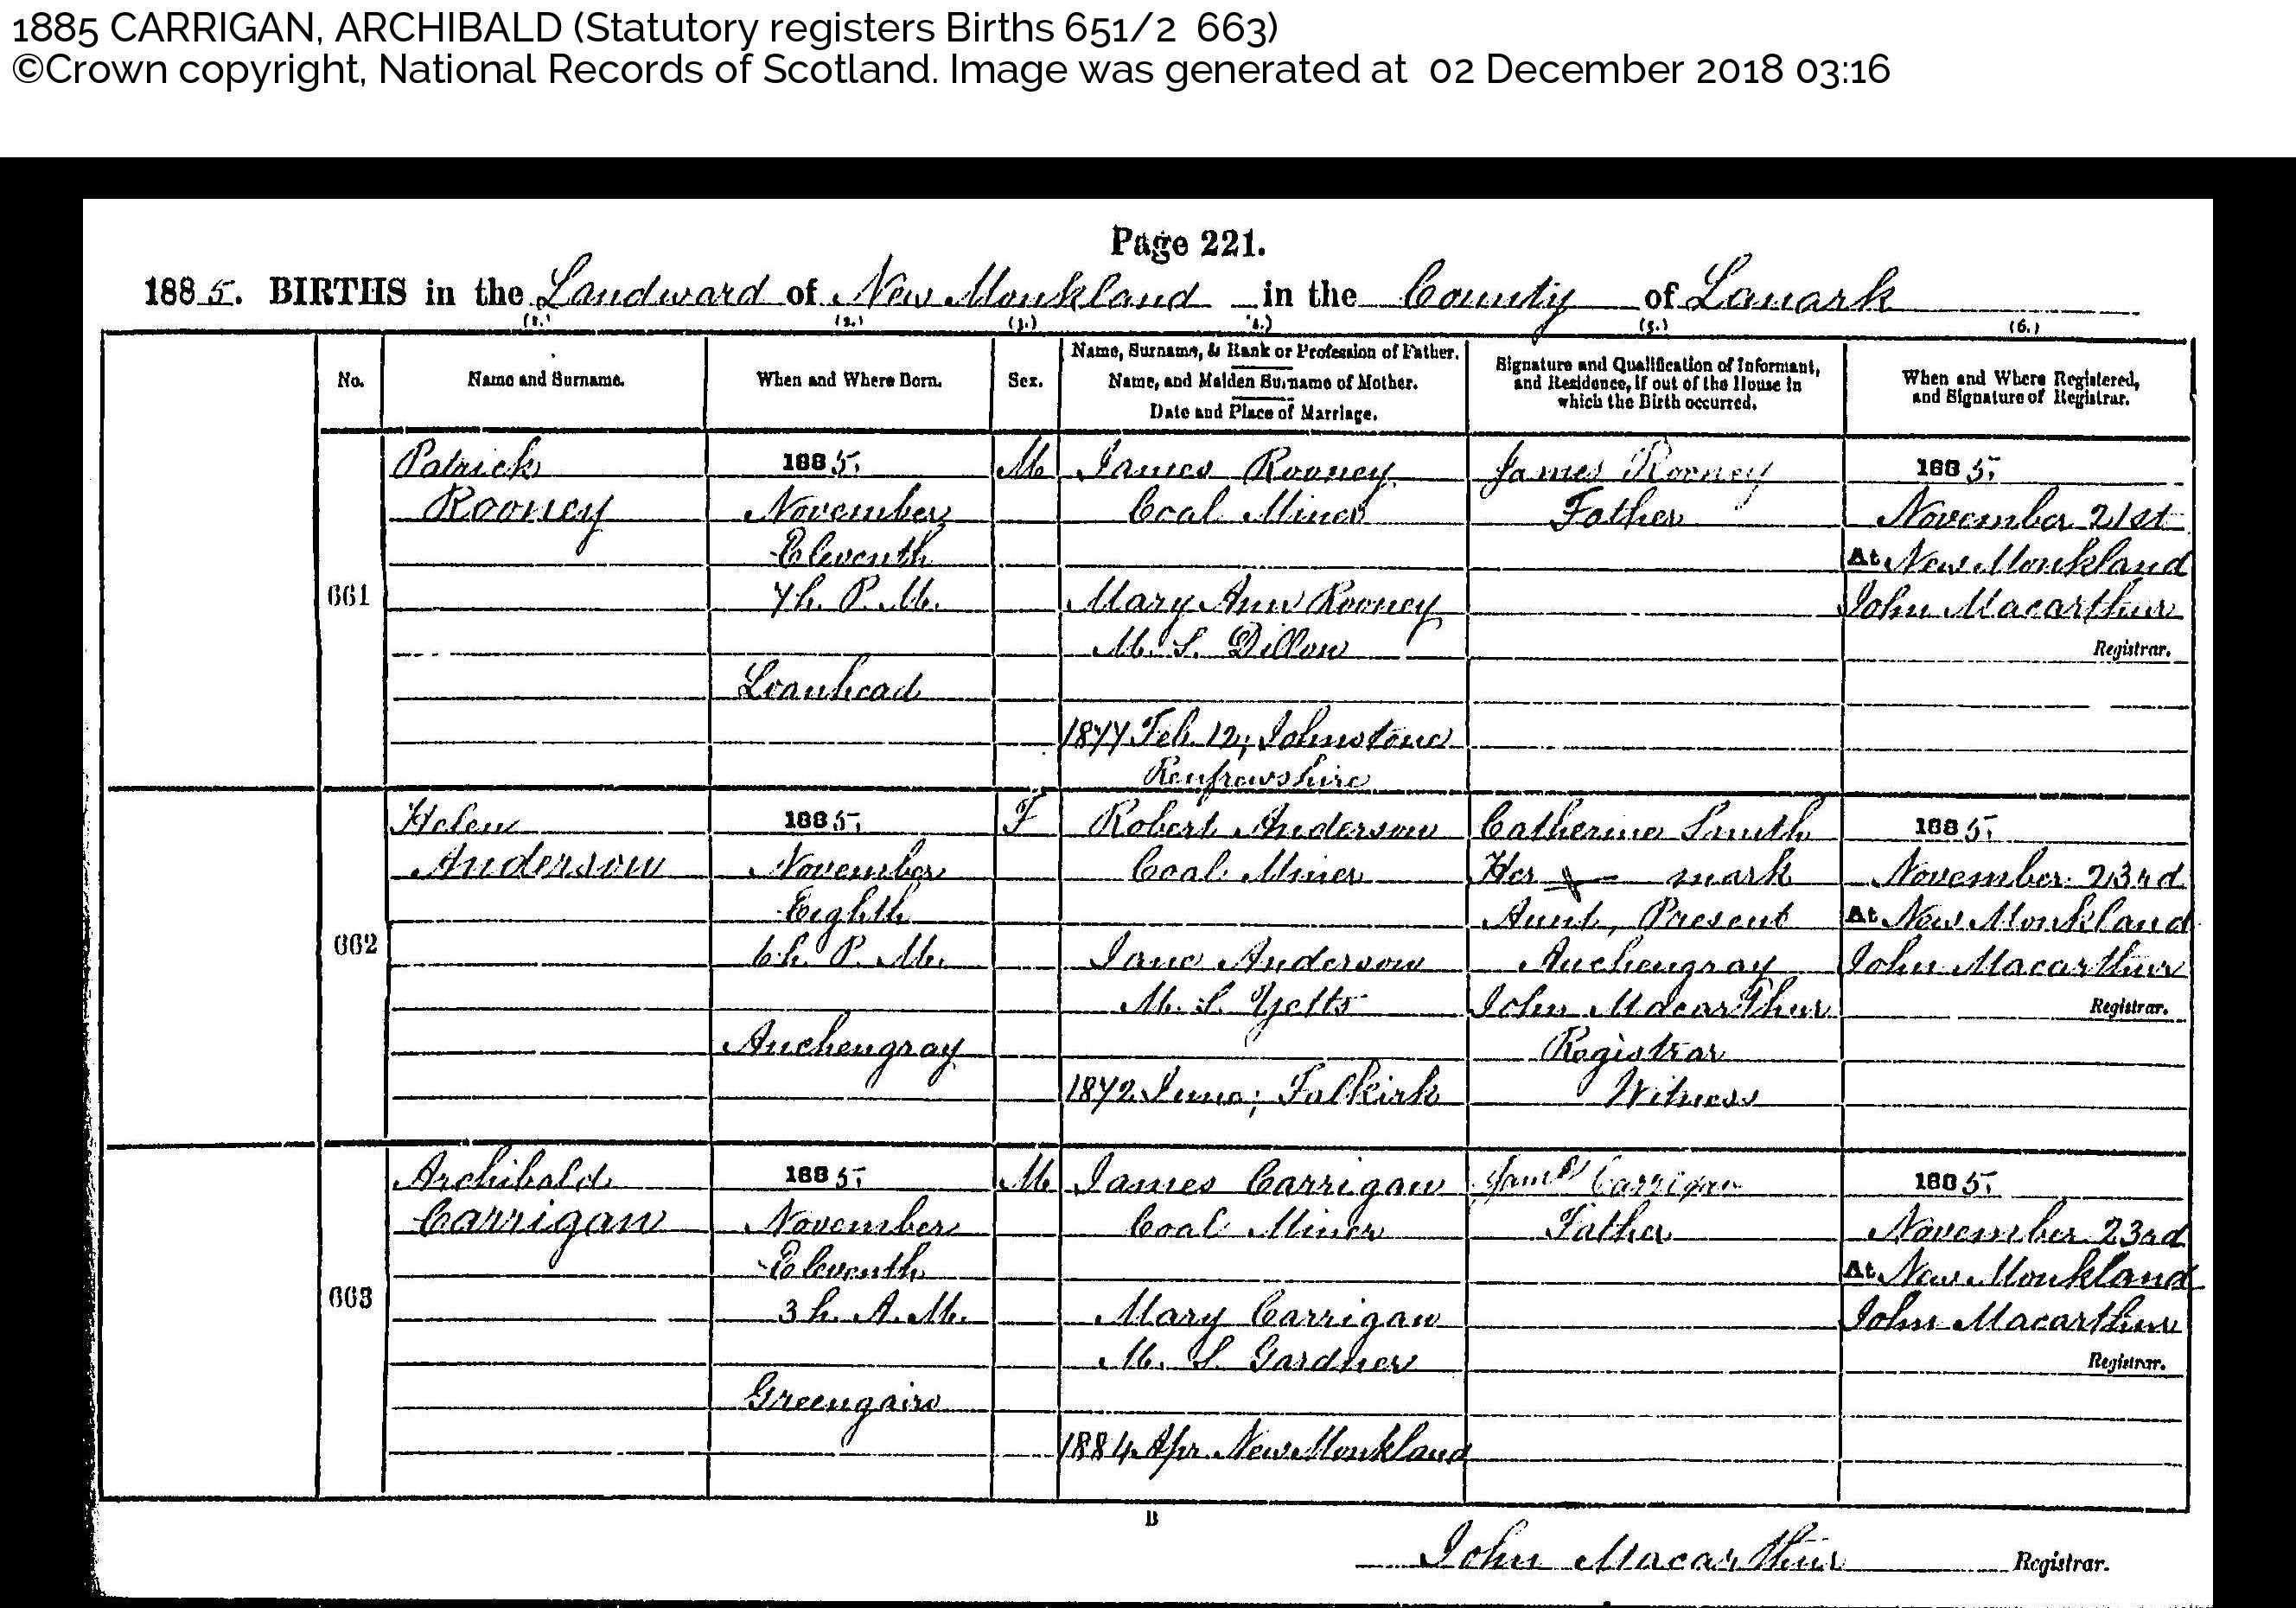 1885 CARRIGAN, ARCHIBALD (Statutory registers Births 651/2 663)
©Crown copyright, National Records of Scotland. Image was generated at 02 December 2018 03:16
Page 221.
1885. BIRTHS in the Landward of New Monkland in the County of Lanark
(1.) (2.) (3.) (4.) (5.) (6.)
No.
Name and Surname.
When and Where Born.
Sex.
Name, Surname, & Rank or Profession of Father.
Name, and Maiden Surname of Mother.
Date and Place of Marriage.
Signature and Qualification of Informant,
and Residence, if out of the House in
which the Birth occurred.
When and Where Registered,
and Signature of Registrar.
661
Patrick
Rooney
1885.
November
Eleventh
7h. P. M.
Loanhead
M
James Rooney
Coal Miner
Mary Ann Rooney
M. S. Dillon
1877 Feb. 12; Johnstone
Renfrewshire
James Rooney
Father
1885.
November 21st
At New Monkland
John Macarthur
Registrar.
662
Helen
Anderson
1885.
November
Eighth
6h. P. M.
Auchengray
F
Robert Anderson
Coal Miner
Jane Anderson
M. S. Yetts
1872 June; Falkirk
Catherine Smith
Her x mark
Aunt, Present
Auchengray
John Macarthur
Registrar
Witness
1885.
November 23rd
At New Monkland
John Macarthur
Registrar.
663
Archibald
Carrigan
1885.
November
Eleventh
3h. A. M.
Greengairs
M
James Carrigan
Coal Miner
Mary Carrigan
M. S. Gardner
1884 Apr. New Monkland
James Carrigan
Father
1885.
November 23rd
At New Monkland
John Macarthur
Registrar.
B
John Macarthur Registrar.